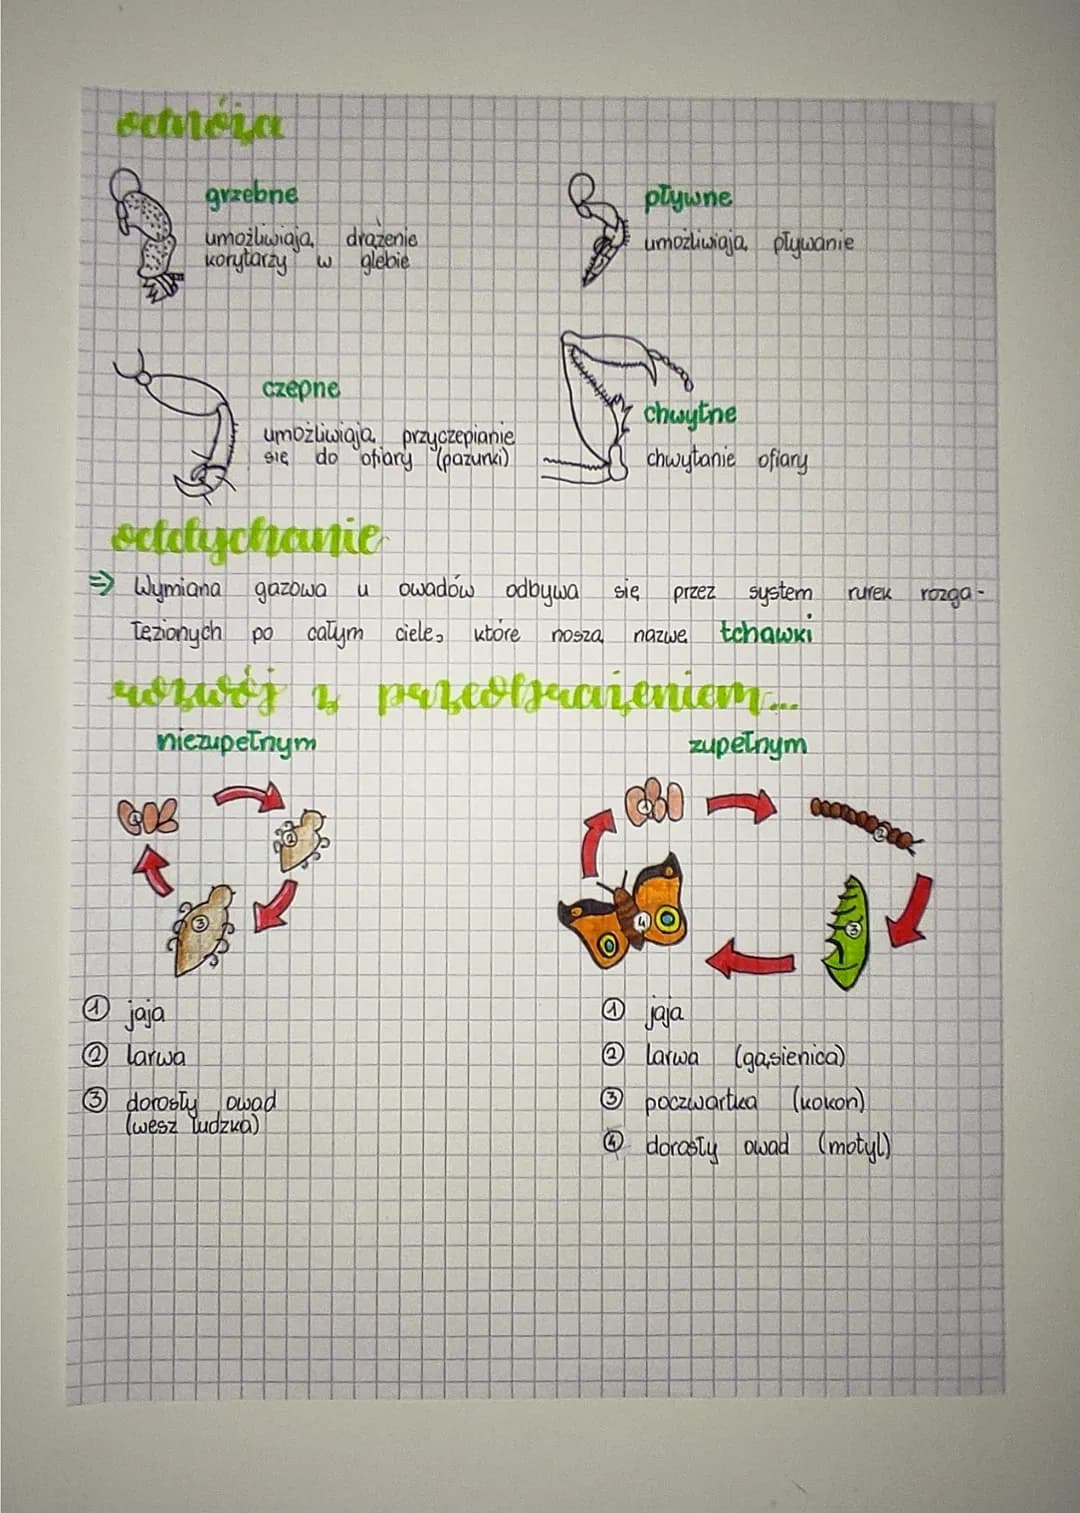 odnóża
grzebne
umożliwiają drążenie
korytarzy w glebie
pływne
umożliwiają pływanie
czepne
umożliwiają przyczepianie
się do ofiary (pazurki)
chwytne
chwytanie ofiary
oddychanie
⇒ Wymiana gazowa u owadów odbywa się przez system rurek rozga-
łęzionych po całym ciele, które noszą nazwę tchawki
rozwój z przeobrażeniem...
niezupełnym
1
2
3
① jaja
② larwa
③ dorosły owad
(wesz ludzka)
zupełnym
1
2
3
4
① jaja
② larwa (gąsienica)
③ poczwarka (kokon)
④ dorosły owad (motyl)